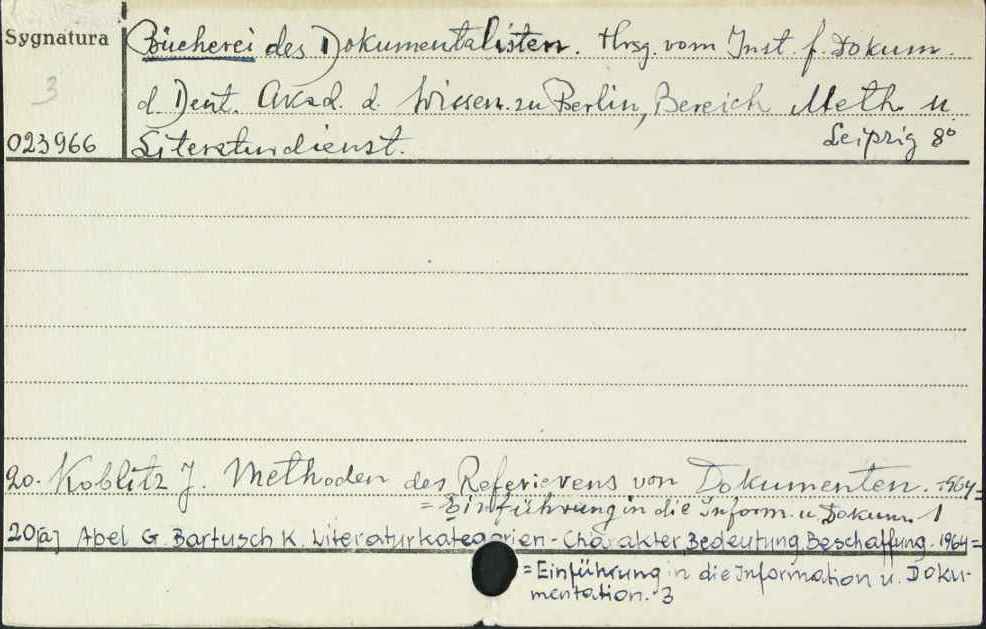 Sygnatura
3
023966
Bücherei des Dokumentalisten. Hrsg. vom Inst. f. Dokum.
d. Deut. Akad. d. Wissen. zu Berlin, Bereich Meth. u.
Literaturdienst. Leipzig 8°
20. Koblitz J. Methoden des Referierens von Dokumenten. 1964=
= Einführung in die Inform. u. Dokum. 1
20[a] Abel G. Bartusch K. Literaturkategorien - Charakter, Bedeutung, Beschaffung. 1964=
= Einführung in die Information u. Doku-
mentation. 3